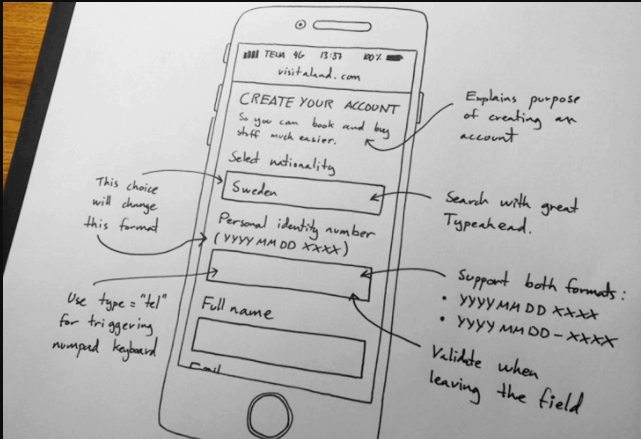 TELIA 4G 13:37 100%
visitaland.com
CREATE YOUR ACCOUNT
So you can book and buy
stuff much easier.
Select nationality
Sweden
Personal identity number
(YYYY MM DD XXXX)
Full name
Email
Explains purpose
of creating an
account
This choice
will change
this format
Search with great
Typeahead.
Use type="tel"
for triggering
numpad keyboard
Support both formats:
• YYYY MM DD XXXX
• YYYY MM DD - XXXX
Validate when
leaving the field